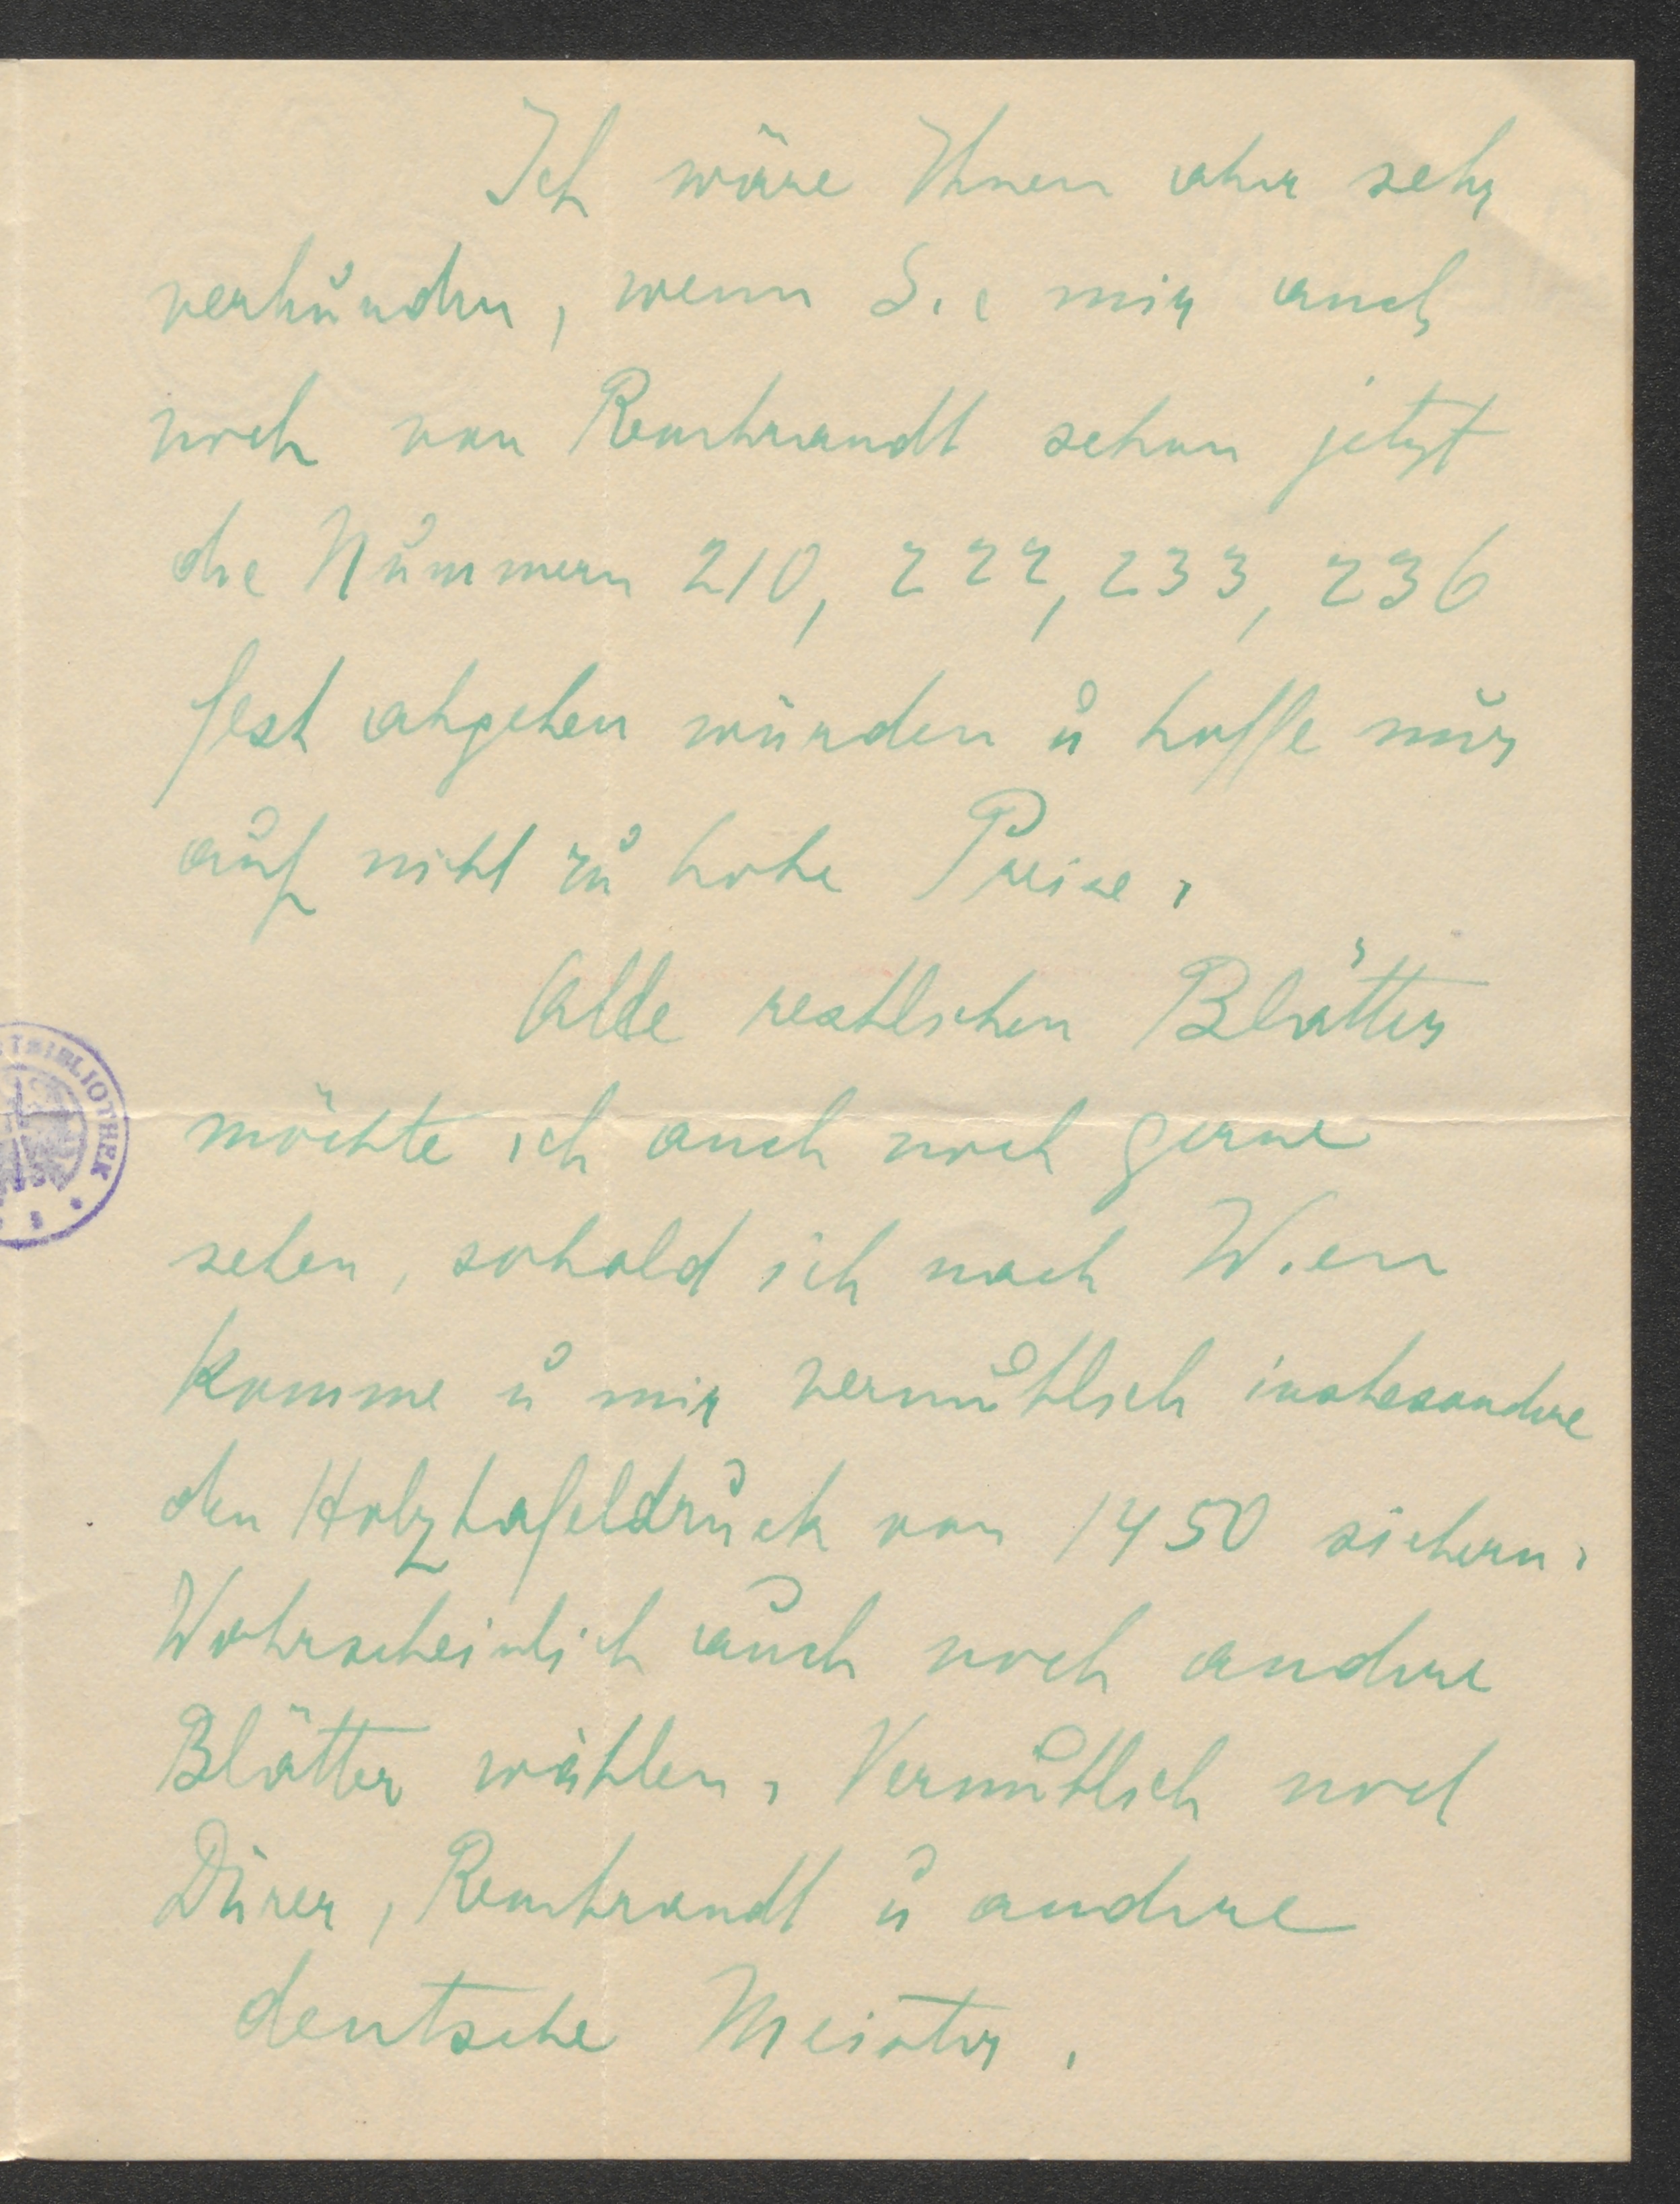 Ich wäre Ihnen aber sehr
verbunden, wenn Sie mir auch
noch von Rembrandt schon jetzt
die Nummern 210, 222, 233, 236
fest abgeben würden u hoffe nur
auf nicht zu hohe Preise.
Alle restlichen Blätter
möchte ich auch noch gerne
sehen, sobald ich nach Wien
komme u mir vermutlich insbesondere
den Holztafeldruck von 1450 sichern.
Wahrscheinlich auch noch andere
Blätter wählen. Vermutlich noch
Dürer, Rembrandt u andere
deutsche Meister.
TBIBLIOTHEK